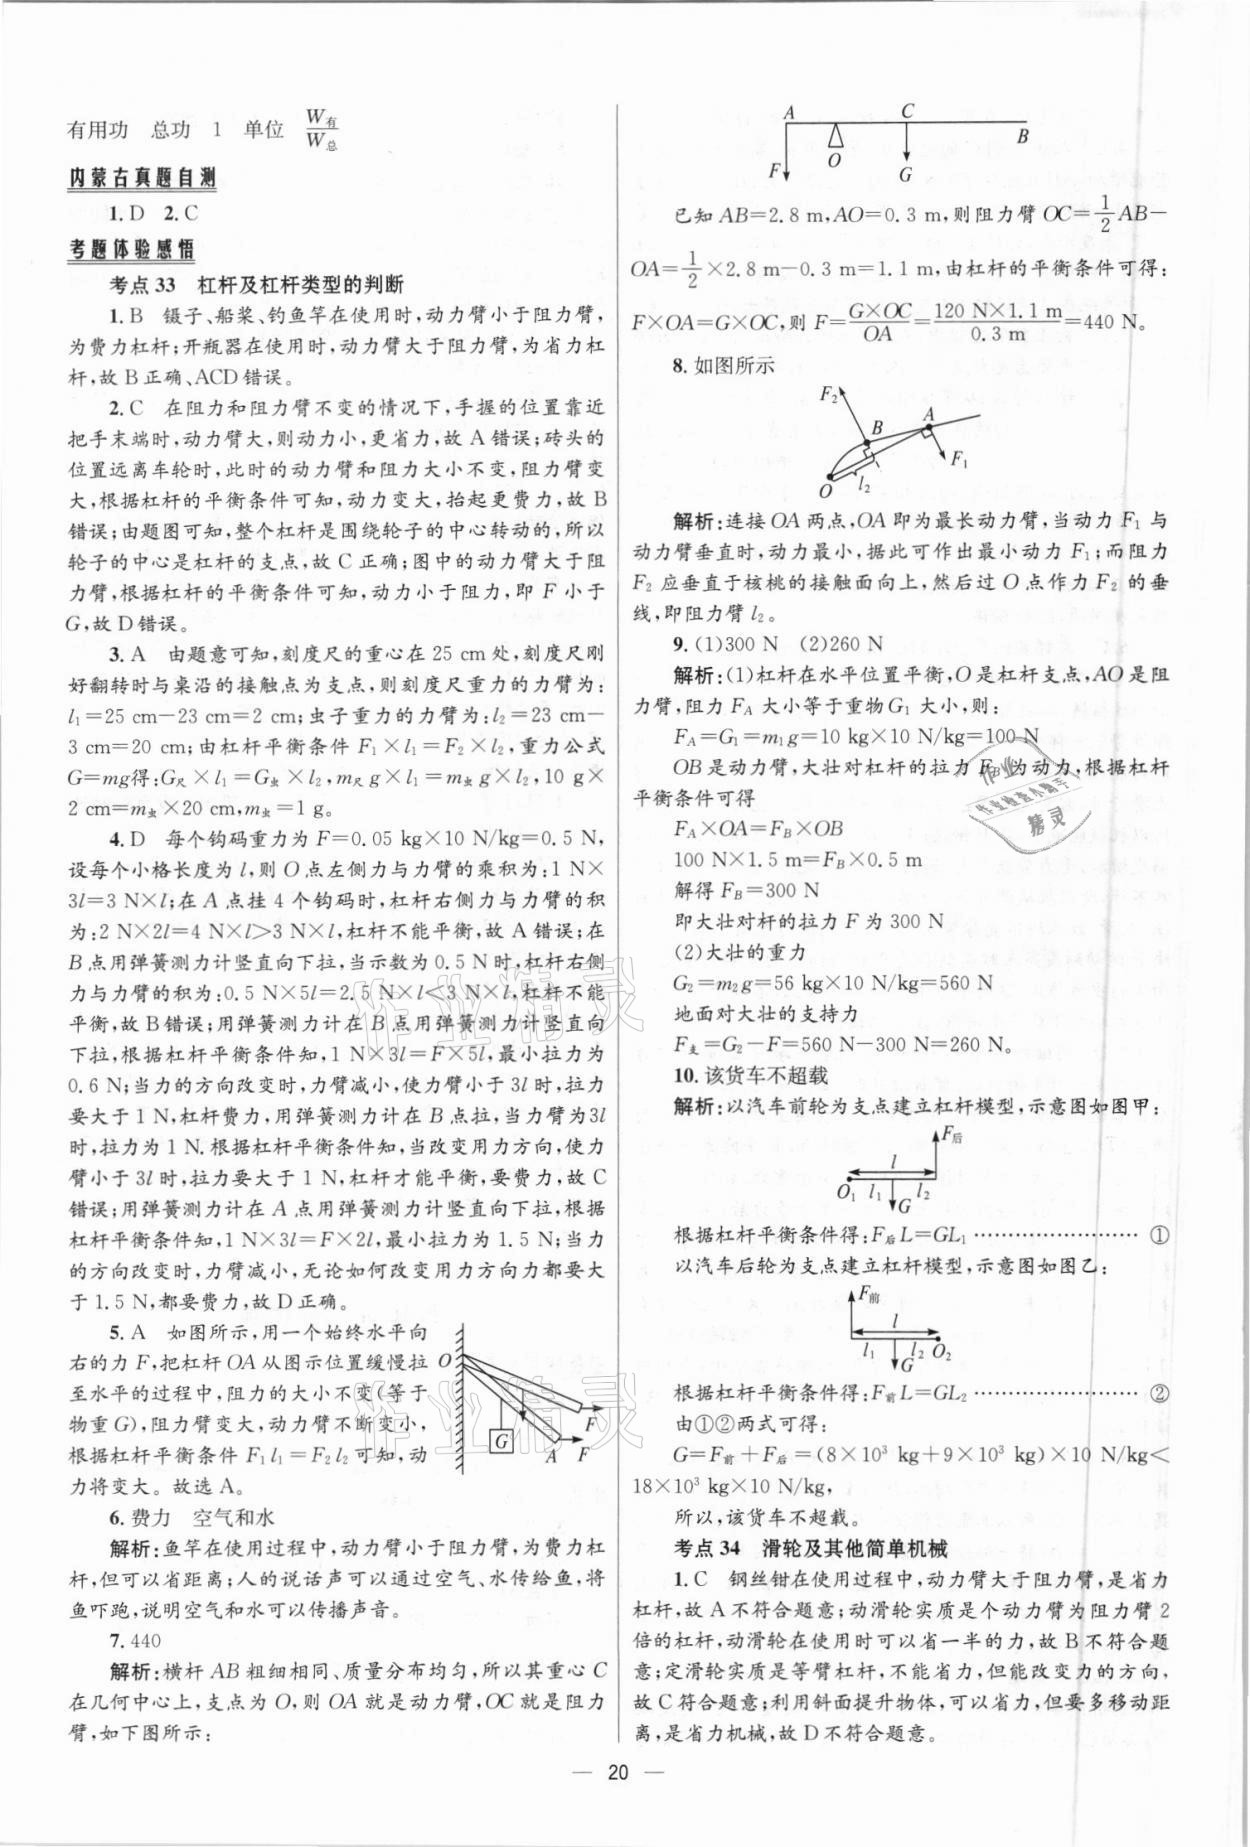 有用功　总功　1　单位　W有/W总
内蒙古真题自测
1. D　2. C
考题体验感悟
考点 33　杠杆及杠杆类型的判断
1. B　镊子、船桨、钓鱼竿在使用时,动力臂小于阻力臂,
为费力杠杆;开瓶器在使用时,动力臂大于阻力臂,为省力杠
杆,故 B 正确、ACD 错误。
2. C　在阻力和阻力臂不变的情况下,手握的位置靠近
把手末端时,动力臂大,则动力小,更省力,故 A 错误;砖头的
位置远离车轮时,此时的动力臂和阻力大小不变,阻力臂变
大,根据杠杆的平衡条件可知,动力变大,抬起更费力,故 B
错误;由题图可知,整个杠杆是围绕轮子的中心转动的,所以
轮子的中心是杠杆的支点,故 C 正确;图中的动力臂大于阻
力臂,根据杠杆的平衡条件可知,动力小于阻力,即 F 小于
G,故 D 错误。
3. A　由题意可知,刻度尺的重心在 25 cm 处,刻度尺刚
好翻转时与桌沿的接触点为支点,则刻度尺重力的力臂为:
l₁=25 cm－23 cm=2 cm;虫子重力的力臂为:l₂=23 cm－
3 cm=20 cm;由杠杆平衡条件 F₁×l₁=F₂×l₂,重力公式
G=mg得:G尺×l₁=G虫×l₂,m尺g×l₁=m虫g×l₂,10 g×
2 cm=m虫×20 cm,m虫=1 g。
4. D　每个钩码重力为 F=0.05 kg×10 N/kg=0.5 N,
设每个小格长度为 l,则 O 点左侧力与力臂的乘积为:1 N×
3l=3 N×l;在 A 点挂 4 个钩码时,杠杆右侧力与力臂的积
为:2 N×2l=4 N×l＞3 N×l,杠杆不能平衡,故 A 错误;在
B 点用弹簧测力计竖直向下拉,当示数为 0.5 N时,杠杆右侧
力与力臂的积为:0.5 N×5l=2.5 N×l＜3 N×l,杠杆不能
平衡,故 B 错误;用弹簧测力计在 B 点用弹簧测力计竖直向
下拉,根据杠杆平衡条件知,1 N×3l=F×5l,最小拉力为
0.6 N;当力的方向改变时,力臂减小,使力臂小于3l时,拉力
要大于 1 N,杠杆费力,用弹簧测力计在 B 点拉,当力臂为3l
时,拉力为 1 N.根据杠杆平衡条件知,当改变用力方向,使力
臂小于 3l 时,拉力要大于 1 N,杠杆才能平衡,要费力,故 C
错误;用弹簧测力计在 A 点用弹簧测力计竖直向下拉,根据
杠杆平衡条件知,1 N×3l=F×2l,最小拉力为 1.5 N;当力
的方向改变时,力臂减小,无论如何改变用力方向力都要大
于 1.5 N,都要费力,故 D 正确。
5. A　如图所示,用一个始终水平向
右的力 F,把杠杆 OA 从图示位置缓慢拉
至水平的过程中,阻力的大小不变(等于
物重 G),阻力臂变大,动力臂不断变小,
根据杠杆平衡条件 F₁l₁=F₂l₂ 可知,动
力将变大。故选 A。
O
G
A
F
F
6. 费力　空气和水
解析:鱼竿在使用过程中,动力臂小于阻力臂,为费力杠
杆,但可以省距离;人的说话声可以通过空气、水传给鱼,将
鱼吓跑,说明空气和水可以传播声音。
7. 440
解析:横杆 AB 粗细相同、质量分布均匀,所以其重心 C
在几何中心上,支点为 O,则 OA 就是动力臂,OC 就是阻力
臂,如下图所示:
A
C
B
O
F
G
已知 AB=2.8 m,AO=0.3 m,则阻力臂 OC=1/2 AB－
OA=1/2×2.8 m－0.3 m=1.1 m,由杠杆的平衡条件可得:
F×OA=G×OC,则 F=G×OC/OA=120 N×1.1 m/0.3 m=440 N。
8. 如图所示
F₂
B
A
F₁
O
l₂
解析:连接 OA 两点,OA 即为最长动力臂,当动力 F₁ 与
动力臂垂直时,动力最小,据此可作出最小动力 F₁;而阻力
F₂ 应垂直于核桃的接触面向上,然后过 O 点作力 F₂ 的垂
线,即阻力臂 l₂。
9. (1)300 N　(2)260 N
解析:(1)杠杆在水平位置平衡,O 是杠杆支点,AO 是阻
力臂,阻力 FA 大小等于重物G₁大小,则:
FA=G₁=m₁g=10 kg×10 N/kg=100 N
OB是动力臂,大壮对杠杆的拉力 FB 为动力,根据杠杆
平衡条件可得
FA×OA=FB×OB
100 N×1.5 m=FB×0.5 m
解得 FB=300 N
即大壮对杆的拉力 F 为 300 N
(2)大壮的重力
G₂=m₂g=56 kg×10 N/kg=560 N
地面对大壮的支持力
F支=G₂－F=560 N－300 N=260 N。
10. 该货车不超载
解析:以汽车前轮为支点建立杠杆模型,示意图如图甲:
F后
l
O₁
l₁
G
l₂
根据杠杆平衡条件得:F后L=GL₁ …………………… ①
以汽车后轮为支点建立杠杆模型,示意图如图乙:
F前
l
l₁
G
l₂
O₂
根据杠杆平衡条件得:F前L=GL₂ …………………… ②
由①②两式可得:
G=F前+F后=(8×10³ kg+9×10³ kg)×10 N/kg＜
18×10³ kg×10 N/kg,
所以,该货车不超载。
考点 34　滑轮及其他简单机械
1. C　钢丝钳在使用过程中,动力臂大于阻力臂,是省力
杠杆,故 A 不符合题意;动滑轮实质是个动力臂为阻力臂 2
倍的杠杆,动滑轮在使用时可以省一半的力,故 B 不符合题
意;定滑轮实质是等臂杠杆,不能省力,但能改变力的方向,
故 C 符合题意;利用斜面提升物体,可以省力,但要多移动距
离,是省力机械,故 D 不符合题意。
— 20 —
作业精灵
作业精灵
作业
作业检查小助手
精灵